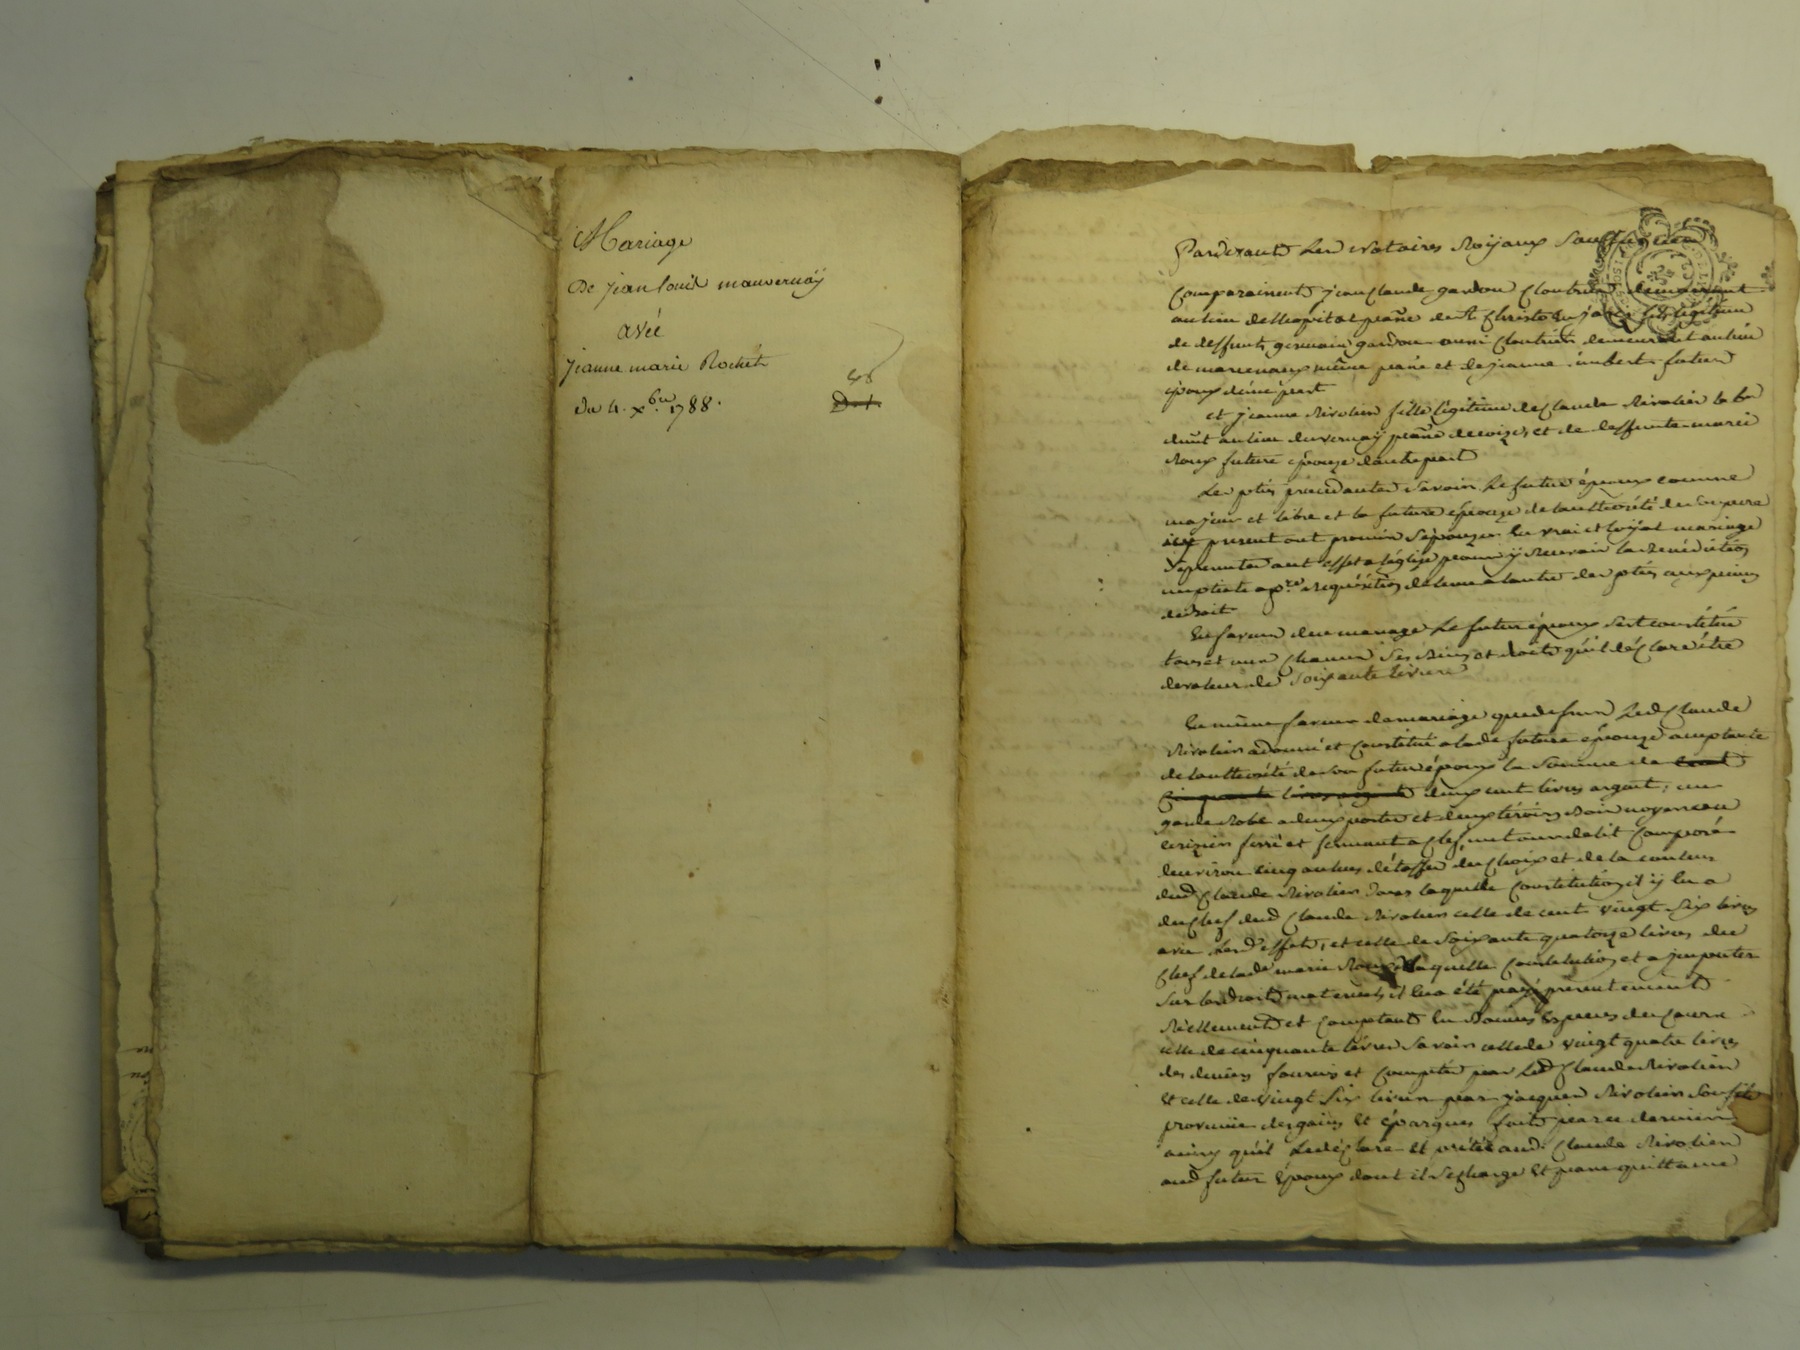 Mariage
De jean louis mauvernaÿ
avéc
jeanne marie Rochét
du 4. xbre 1788.
48
Pardevant Les Notaires Roÿaux Soussignés
Comparaissent jean Claude gardon Cloutrier demeurant
au lieu de lhopital psse de St Christo en jarez fils légitime
de deffunt germain gardon aussi Cloutrier demeurant au lieu
de même psse et de jeanne imbert futur
époux d'une part
et jeanne Rivolier fille légitime de Claude Rivolier
au lieu du vernaÿ psse de et de deffunte marie
Roux future épouze dautre part
Les pties procedantes Savoir Le futur époux comme
majeur et libre et la future épouze de lauthorité de Son pere
icy present ont promis S'épouzer En vrai et loyal mariage
Se presenter a cet effet a léglise pour ÿ Recevoir la Bénédiction
nuptiale a pre requisition de lune a lautre des pties aux peines
de droit
En faveur du mariage Le futur époux Sest constitué
tous et un Chacun Ses Biens et droits qu'il déclare être
de valeur de Soixante livres
En même faveur de mariage que dessus Led Claude
Rivolier a donné et Constitué a lade future épouze acceptante
de lauthorité de son futur époux la Somme de cent
Cinquante livres argent deux cent livres argent, un
garde Robe a deux portes et deux tiroirs Bois noyer et
cerizier ferré et fermant a Clef, un tour de lit Composé
denviron cinq aulnes d'étoffe du Choix et de la couleur
dud Claude Rivolier Dans laquelle Constitution, il ÿ En a
du Chef dud Claude Rivolier celle de cent vingt Six livres
avec Lesd effets, et celle de Soixante quatorze livres du
Chef de lade marie Roux Laquelle Constitution et a jmputer
Sur les droits maternels, il En a été payé presentement
Réellement et Comptant En Bonnes Especes du Cours
celle de cinquante livres Savoir celle de vingt quatre livres
des deniers fournis et Comptés par Led Claude Rivolier
Et celle de vingt Six livres par jacques Rivolier Son fils
provenüe des gains Et épargnes faits par ce dernier
ainsy qu'il Le déclare Et aud Claude Rivolier
aud futur Époux dont il Se charge Et passe quittance